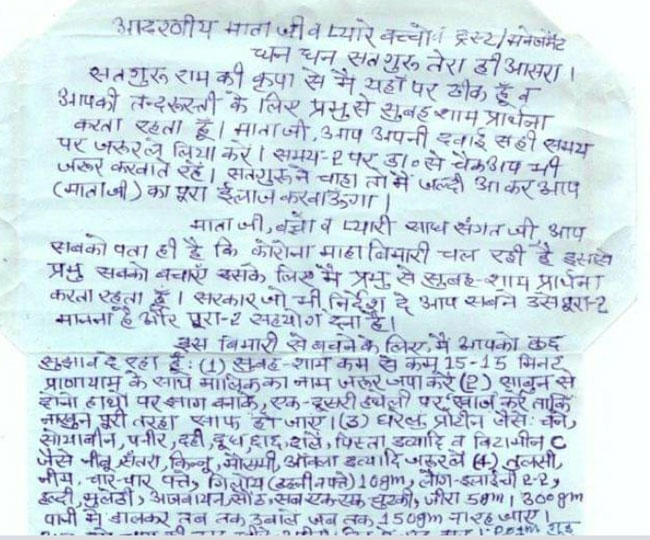 आदरणीय माता जी व प्यारे बच्चों ट्रस्ट/मनेजमैंट
धन धन सतगुरु तेरा ही आसरा।
सतगुरु राम की कृपा से मैं यहाँ पर ठीक हूँ व
आपकी तन्दरूस्ती के लिए प्रभु से सुबह शाम प्रार्थना
करता रहता हूँ। माता जी, आप अपनी दवाई सही समय
पर जरूर ले लिया करें। समय-2 पर डा० से चेकअप भी
जरूर करवाते रहें। सतगुरु ने चाहा तो मैं जल्दी आ कर आप
(माता जी) का पूरा ईलाज करवाऊँगा।
माता जी, बच्चो व प्यारी साध संगत जी, आप
सबको पता ही है कि कोरोना माहा बिमारी चल रही है इससे
प्रभु सबको बचाएँ इसके लिए मैं प्रभु से सुबह-शाम प्रार्थना
करता रहता हूँ। सरकार जो भी निर्देश दे आप सबने उसे पूरा-2
मानना है और पूरा-2 सहयोग देना है।
इस बिमारी से बचने के लिए मैं आपको कुछ
सुझाव दे रहा हूँ: (1) सुबह-शाम कम से कम 15-15 मिनट
प्राणायाम के साथ मालिक का नाम जरूर जपा करें (2) साबुन से
दोनो हाथों पर झाग बनाके, एक-दूसरी हथेली पर खाज करें ताकि
नाखुन पूरी तरहा साफ हो जाए। (3) घरेलू प्रोटीन जैसे: चने,
सोयाबीन, पनीर, दही, दूध, छाछ, दालें, पिस्ता इत्यादि व विटामीन C
जैसे नींबू, संतरा, किन्नू, मौसमी, आँवला इत्यादि जरूर लें (4) तुलसी,
नीम, चार-चार पत्ते, गिलोय (डंडी व पत्ते) 10gm, लौंग-इलाइची 2-2,
हल्दी, मुलेठी, अजवायन, सौंठ, सब एक-एक चुटकी, जीरा 5gm। 300gm
पानी में डालकर तब तक उबालें जब तक 150gm ना रह जाए।